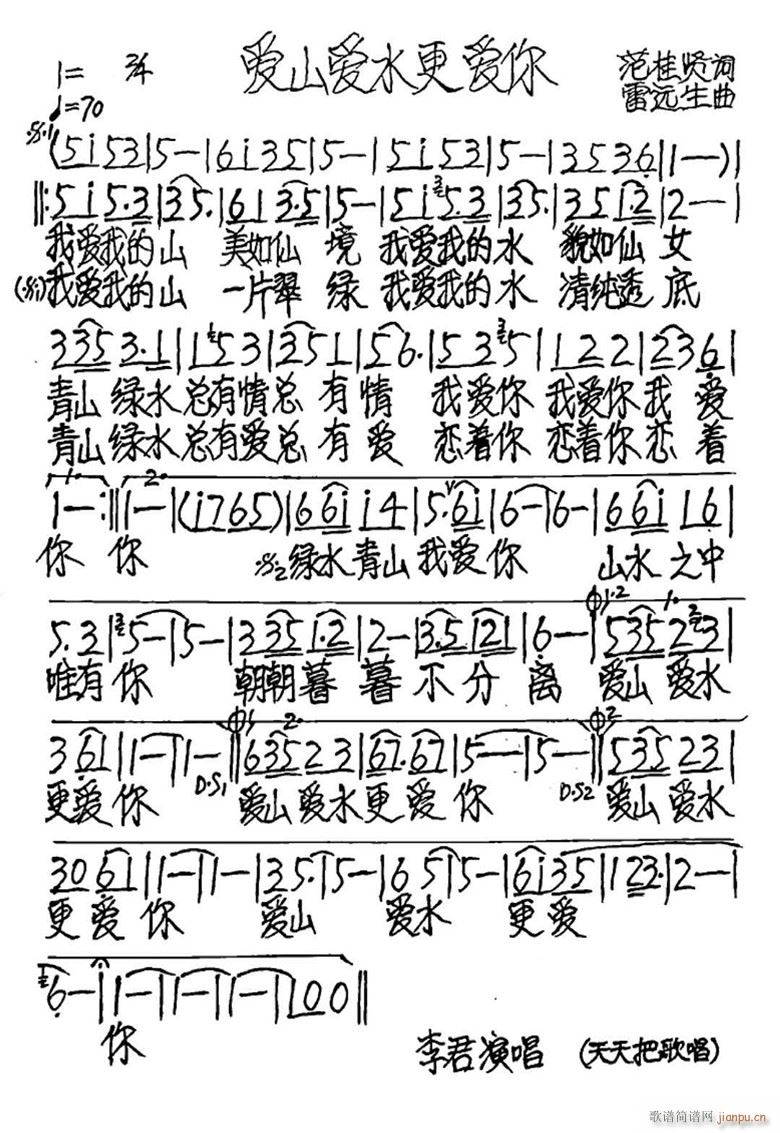 1= 2/4 爱山爱水更爱你 范桂贤词
♩=70 雷远生曲
(5i53|5—|6i35|5—|5i53|5—|3536|1—)|
‖:5i5·3|35·|61 3·5|5—|5i5·3|35·|3512|2—|
我爱我的山 美如仙 境 我爱我的水 貌如仙 女
我爱我的山 一片翠 绿 我爱我的水 清纯透 底
335 3·1|153|351|56·|535|122|236|
青山 绿水总有情总 有情 我爱你 我爱你我 爱
青山 绿水总有爱总 有爱 恋着你 恋着你恋 着
1. 2.
1—:‖1—|(i765)|66i i4|5·6i|6—|6—|66i 16|
你 你 绿水青山我爱你 山水之中
5·3|5—|5—|335 1·2|2—|3·5 121|6—|535 2·3|
唯有你 朝朝暮 暮 不 分 离 爱山 爱水
361|1—|1—‖635 23|67·67|5—|5—‖535 23|
D.S1 D.S2
更爱你 爱山爱水更爱你 爱山 爱水
30 61|1—|1—|35·|5—|65|5—|6i35|123·|2—|
更爱你 爱山 爱水 更爱
6—i|1—|1—|1—|100‖
你
李君演唱 (天天把歌唱)
歌谱简谱网
jianpu.cn